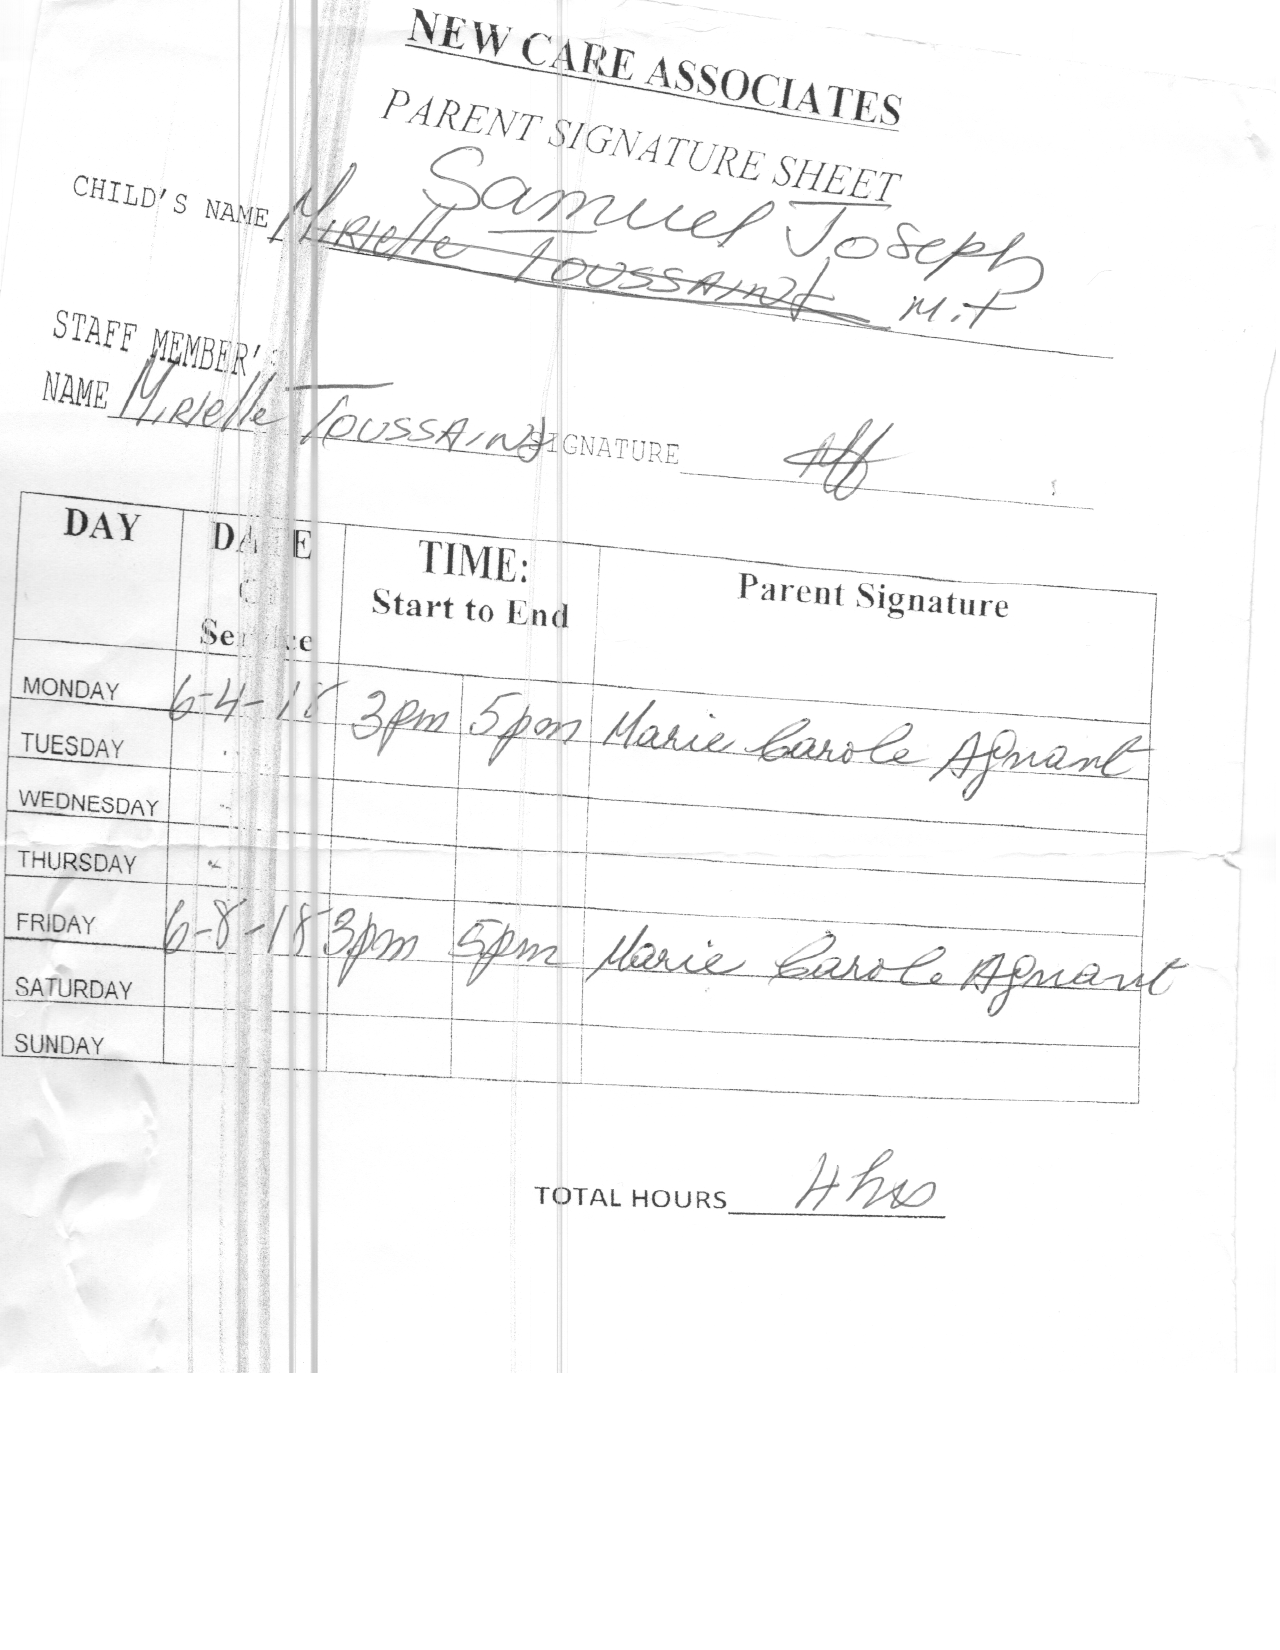 NEW CARE ASSOCIATES
PARENT SIGNATURE SHEET
Samuel Joseph
CHILD'S NAME Mirielle Toussaint M.T
STAFF MEMBER'S
NAME Mirielle Toussaint SIGNATURE
DAY DATE TIME: Parent Signature
Of Start to End
Service
MONDAY 6-4-18 3pm 5pm Marie Carole Agnant
TUESDAY
WEDNESDAY
THURSDAY
FRIDAY 6-8-18 3pm 5pm Marie Carole Agnant
SATURDAY
SUNDAY
TOTAL HOURS 4 hrs